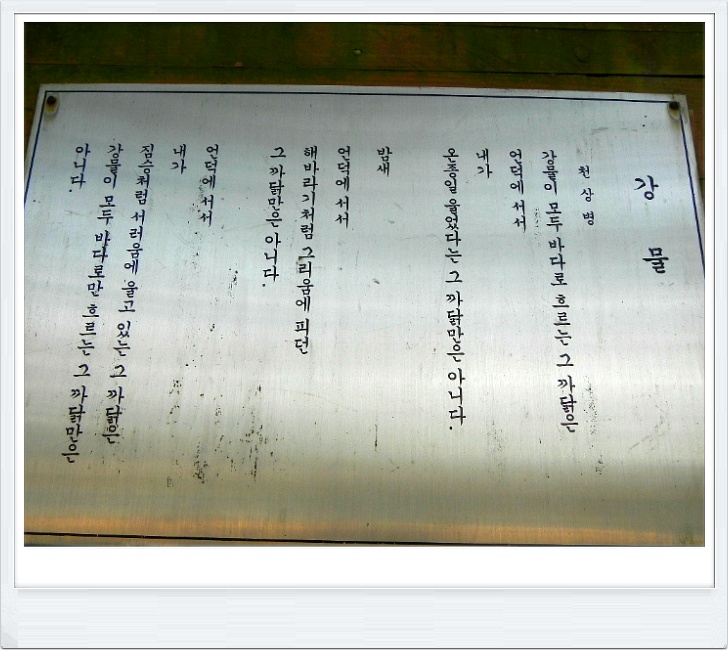 강 물
천 상 병
강물이 모두 바다로 흐르는 그 까닭은
언덕에 서서
내가
온종일 울었다는 그 까닭만은 아니다.
밤새
언덕에 서서
해바라기처럼 그리움에 피던
그 까닭만은 아니다.
언덕에 서서
내가
짐승처럼 서러움에 울고 있는 그 까닭은
강물이 모두 바다로만 흐르는 그 까닭만은
아니다.